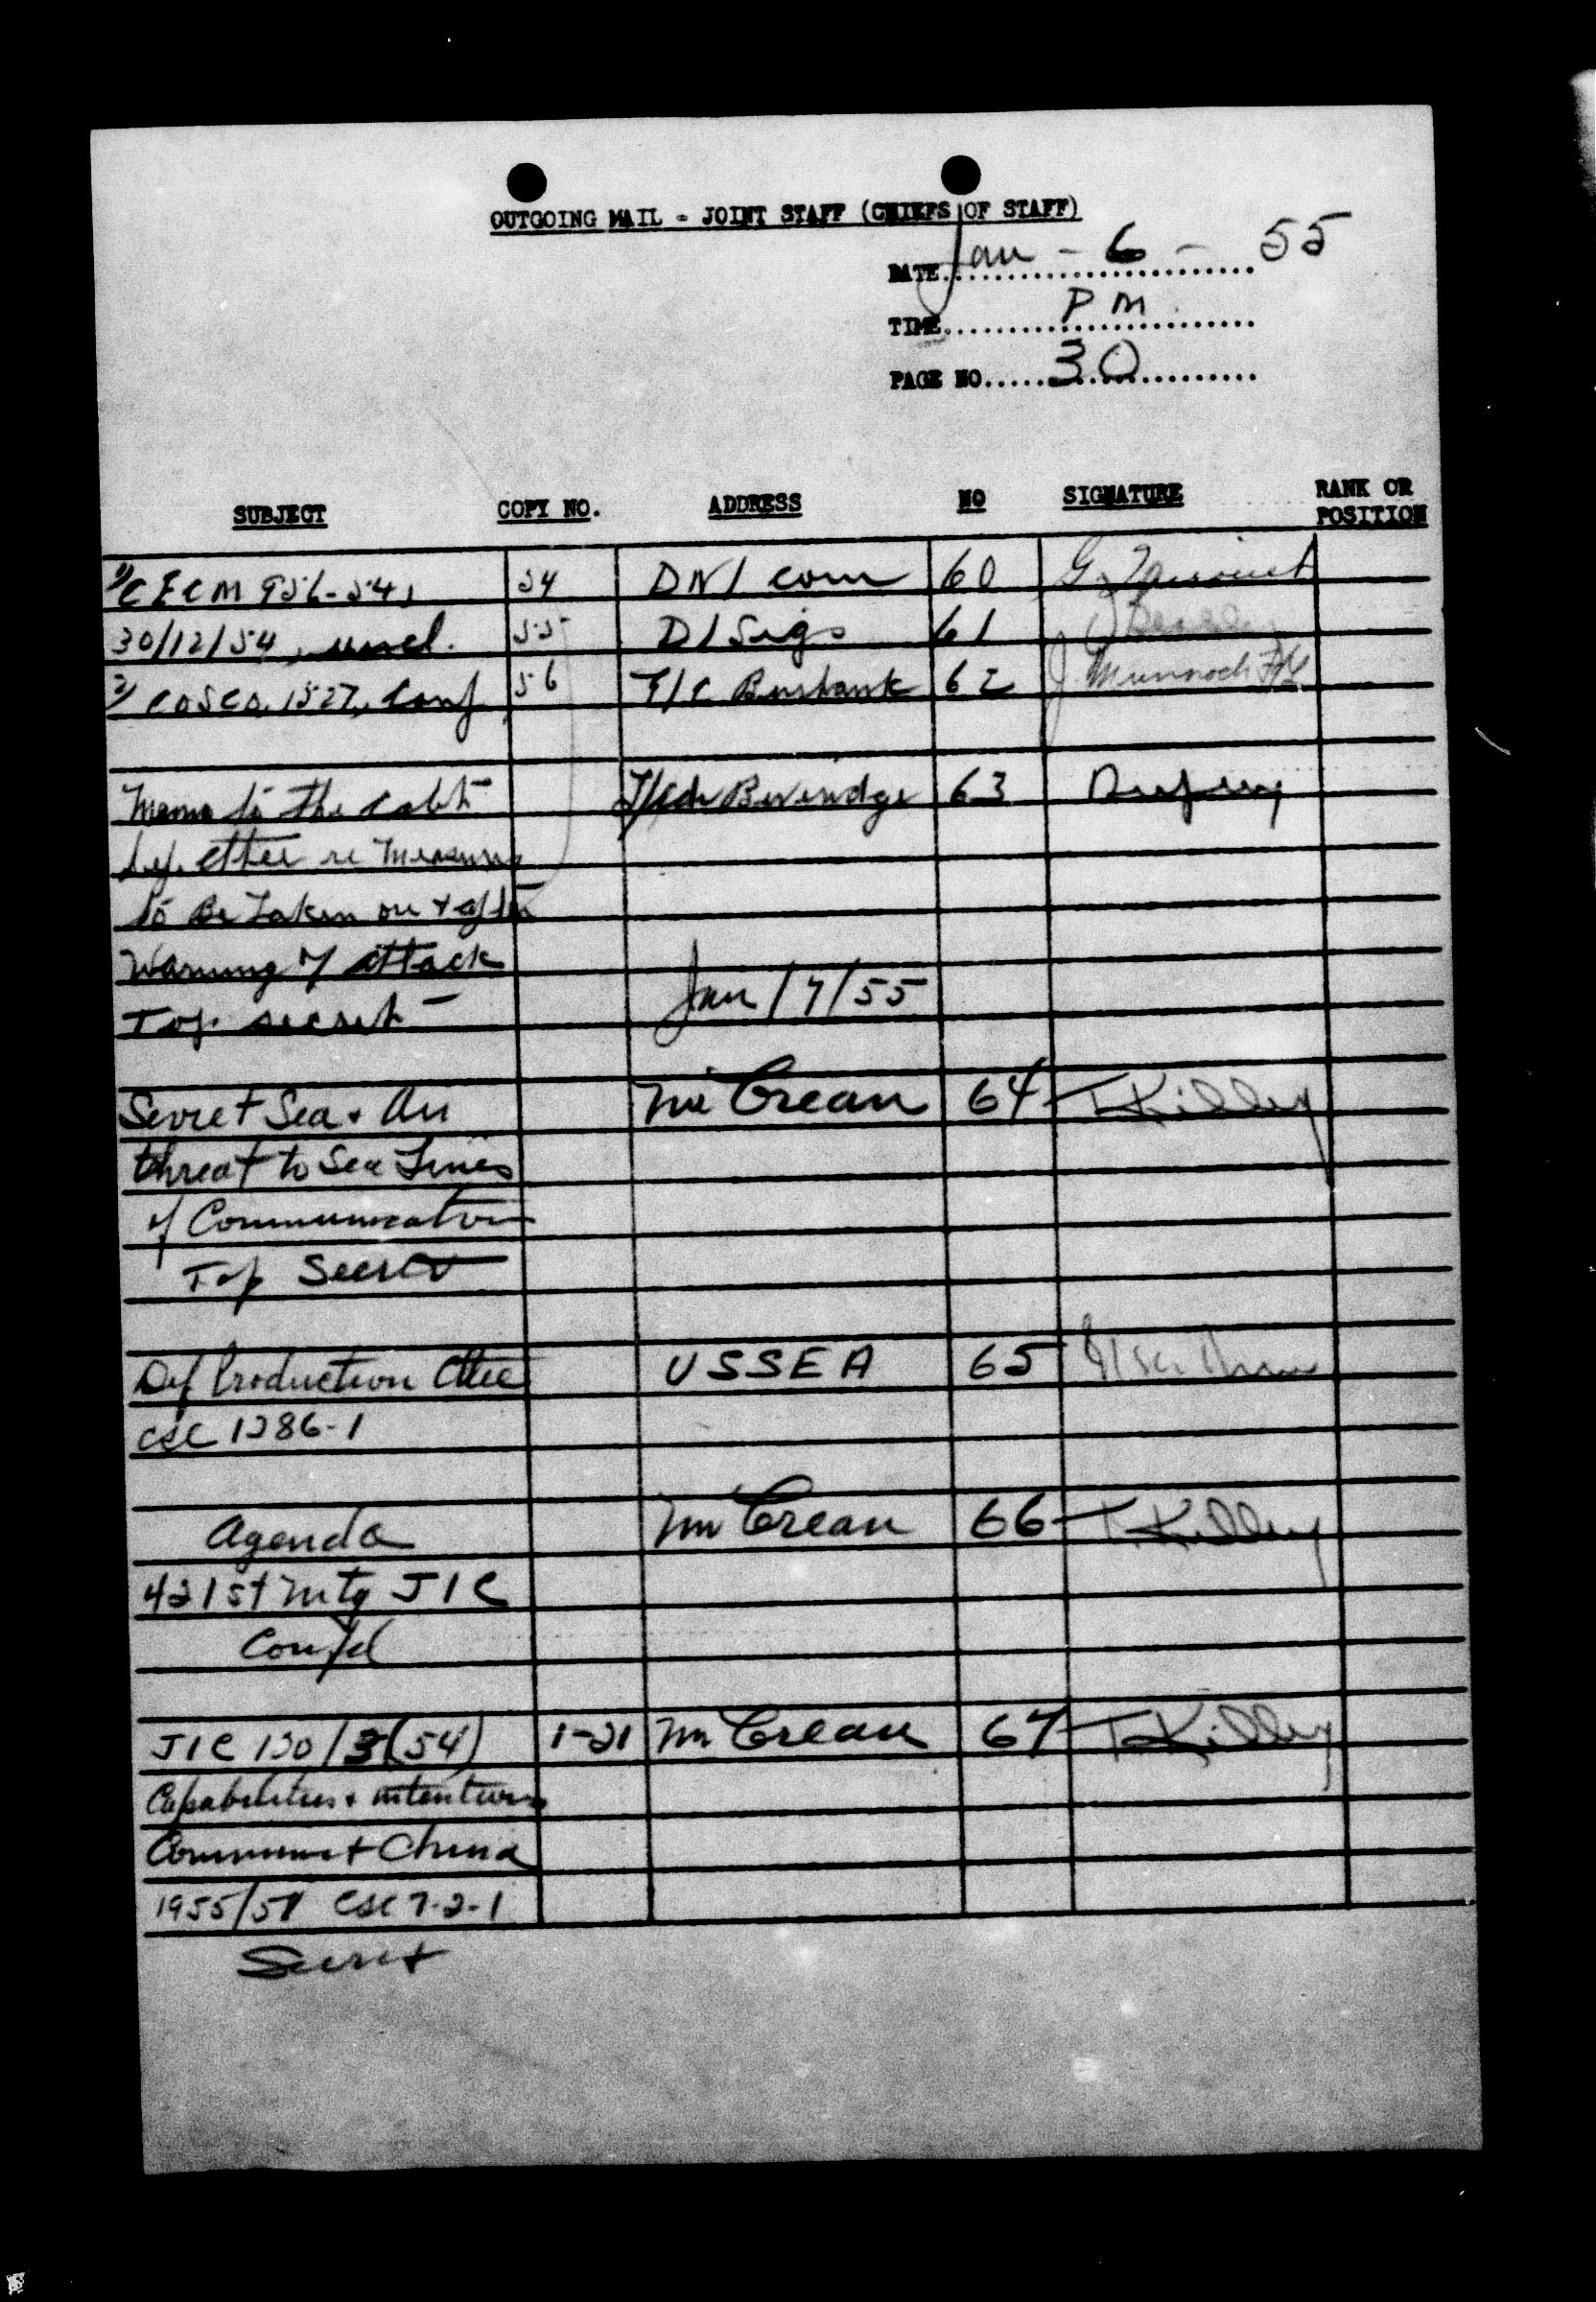 OUTGOING MAIL - JOINT STAFF (CHIEFS OF STAFF)
DATE Jan - 6 - 55
TIME PM
PAGE NO. 30
SUBJECT COPY NO. ADDRESS NO SIGNATURE RANK OR POSITION
1) CECM 956-54, 54 DNI com 60
30/12/54, uncl. 55 D/Sigs 61
2) COSCO, 1527, Conf 56 F/C Burbank 62
Memo to the Cabt Beveridge 63
Def. Cttee re Measures
to Be Taken on + after
Warning of attack
Top secret Jan/7/55
Soviet Sea + Air Mr Crean 64 T Killey
threat to Sea Lines
of Communication
Top Secret
Def Production Cttee USSEA 65
CSC 1286-1
Agenda Mr Crean 66 T Killey
421st Mtg JIC
Confd
JIC 130/3(54) 1-21 Mr Crean 67 T Killey
Capabilities + intentions
Communist China
1955/57 CSC 7-2-1
Secret